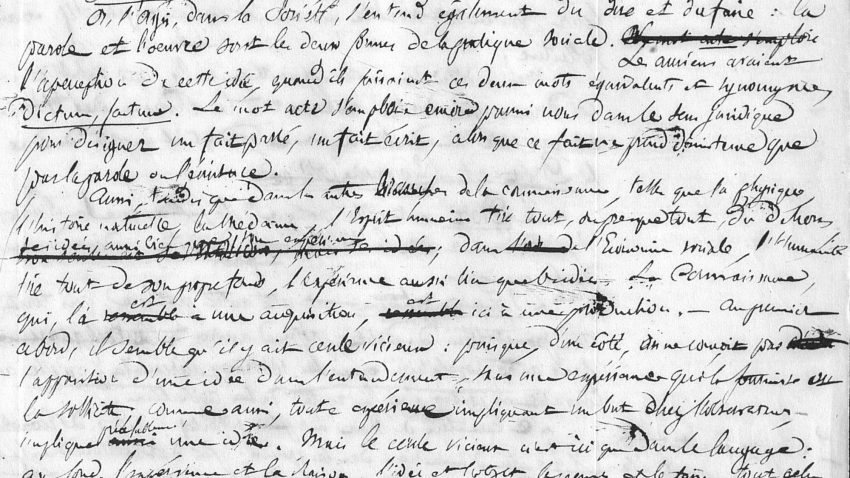 Or, l'agir, dans la Société, s'entend également du dire et du faire : la
parole et l'œuvre sont les deux formes de la pratique sociale.
Les anciens avaient
l'aperception de cette idée, quand ils faisaient ces deux mots équivalents et synonymes,
dictum, factum. Le mot acte s'emploie encore parmi nous dans le sens juridique
pour désigner un fait passé, un fait écrit, alors que ce fait ne prend d'existence que
par la parole ou l'écriture.
Aussi, tandis que dans les autres branches de la connaissance, telle que la physique
l'histoire naturelle, l'Esprit humain tire tout, ou presque tout, du dehors,
ses idées, aussi bien que; dans l'Economie sociale, l'humanité
tire tout de son propre fonds, l'expérience aussi bien que l'idée. La Connaissance,
qui, là est une acquisition, est ici une production. — Au premier
abord, il semble qu'il y ait cercle vicieux : puisque, d'un côté, on ne conçoit pas
l'apparition d'une idée dans l'entendement, sans une expérience qui la fournisse ou
la sollicite, comme aussi, toute expérience impliquant un but chez l'observateur,
implique une idée. Mais le cercle vicieux n'est ici que dans le langage :
au fond, l'expérience et la raison, l'idée et l'objet, tout cela